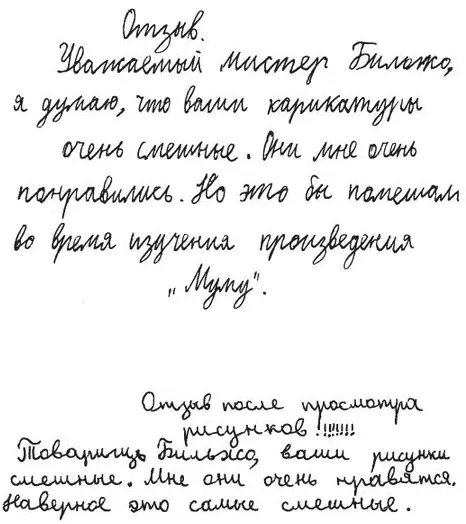 Отзыв.
Уважаемый мистер Бильжо,
я думаю, что ваши карикатуры
очень смешные. Они мне очень
понравились. Но это бы помешал
во время изучения произведения
„Муму".
Отзыв после просмотра
рисунков!!!!!!!!
Товарищъ Бильжо, ваши рисунки
смешные. Мне они очень нравятся.
Наверное это самые смешные.